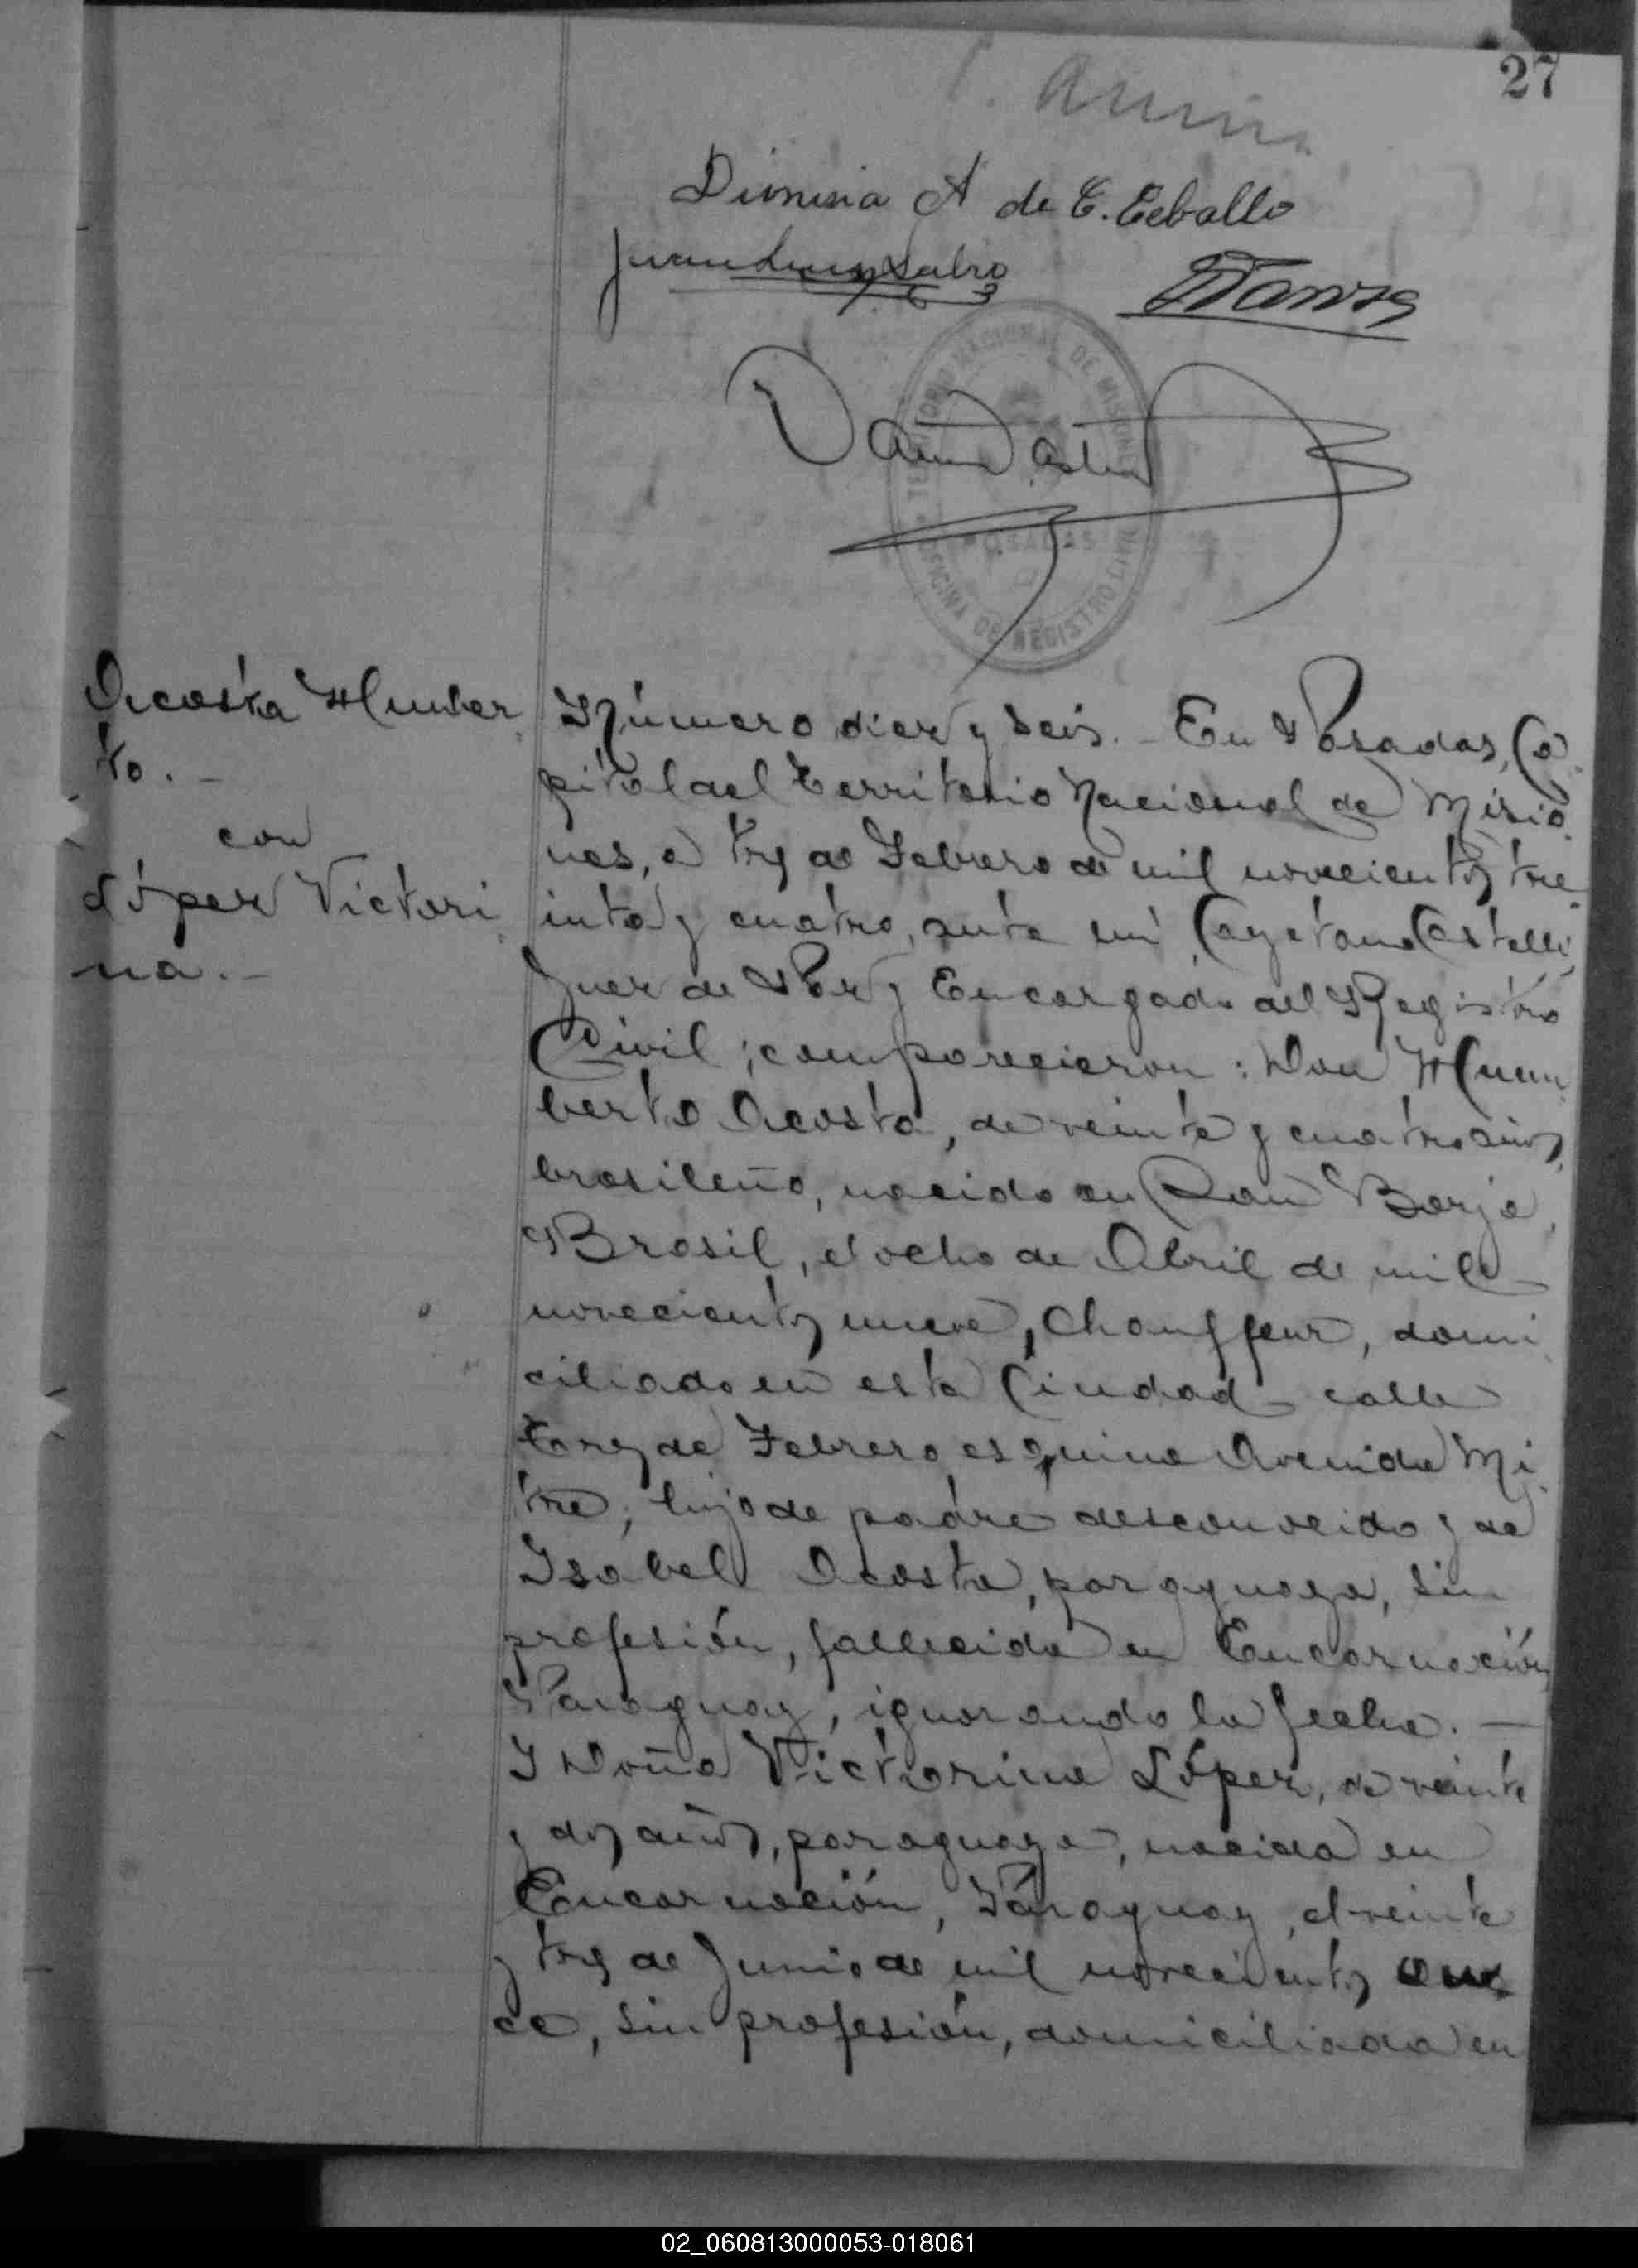 27
de C. Ceballo
TERRITORIO NACIONAL DE MISIONES
POSADAS
OFICINA DE REGISTRO CIVIL
Acosta Humber
to.-
con
López Victori
na.-
Número diez y seis.- En Posadas, Ca
pital del Territorio Nacional de Misio
nes, a tres de Febrero de mil novecientos tre
inta y cuatro, ante mí Cayetano Castelli,
Juez de Paz y Encargado del Registro
Civil; comparecieron: Don Hum
berto Acosta, de veinte y cuatro años,
brasileño, nacido en San Borja,
Brasil, el ocho de Abril de mil
novecientos nueve, Chauffeur, domi
ciliado en esta Ciudad calle
tres de Febrero esquina Avenida Mi
tre, hijo de padre desconocido y de
Isabel Acosta, paraguaya, sin
profesión, fallecida en Encarnación
Paraguay, ignorando la fecha.—
Y Doña Victorina López, de veinte
y dos años, paraguaya, nacida en
Encarnación, Paraguay, el veinte
y tres de Junio de mil novecientos on
ce, sin profesión, domiciliada en
02_060813000053-018061